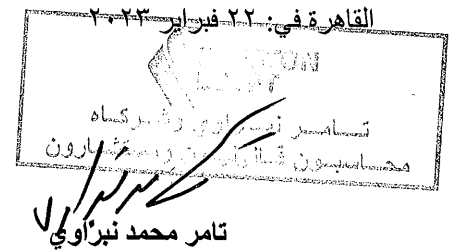 القاهرة في: ٢٢ فبراير ٢٠٢٣
تامر نبراوي وشركاه
محاسبون قانونيون ومستشارون
تامر محمد نبراوي